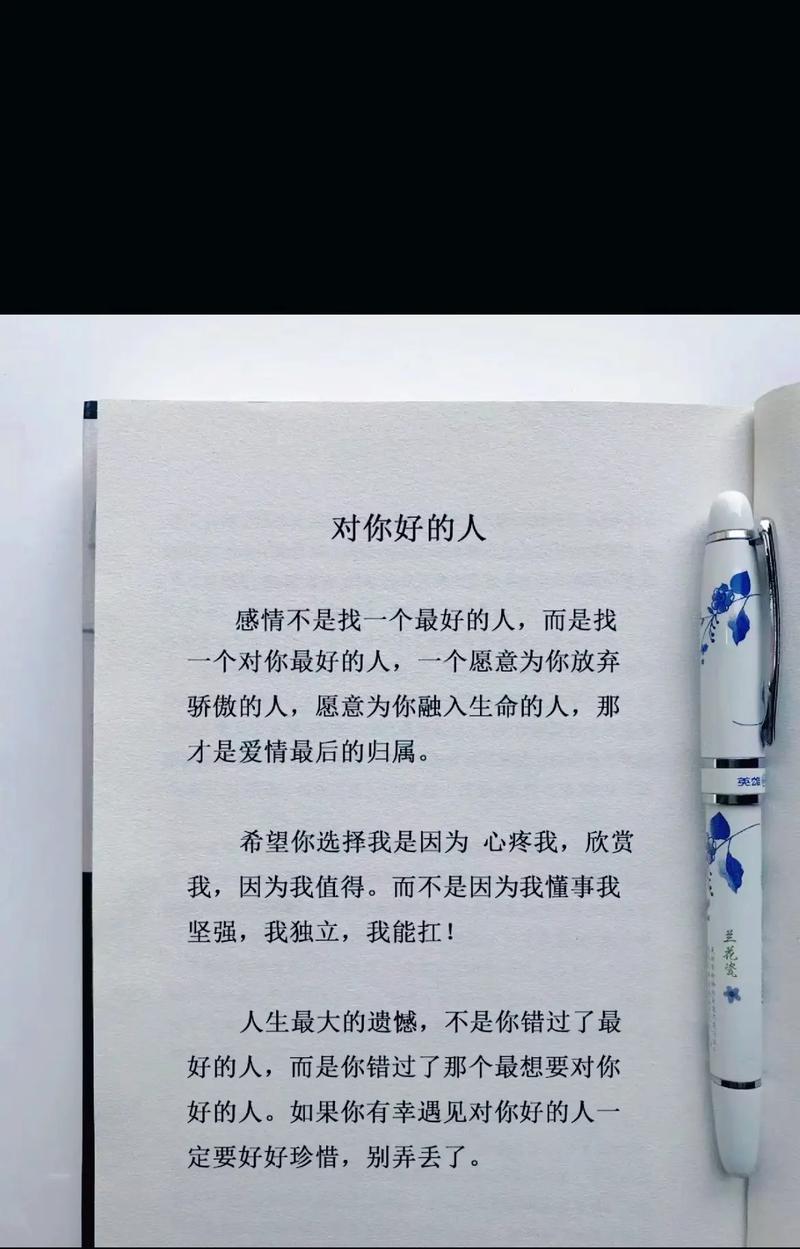 对你好的人
感情不是找一个最好的人，而是找
一个对你最好的人，一个愿意为你放弃
骄傲的人，愿意为你融入生命的人，那
才是爱情最后的归属。
希望你选择我是因为 心疼我，欣赏
我，因为我值得。而不是因为我懂事我
坚强，我独立，我能扛！
人生最大的遗憾，不是你错过了最
好的人，而是你错过了那个最想要对你
好的人。如果你有幸遇见对你好的人一
定要好好珍惜，别弄丢了。
英雄
兰花瓷